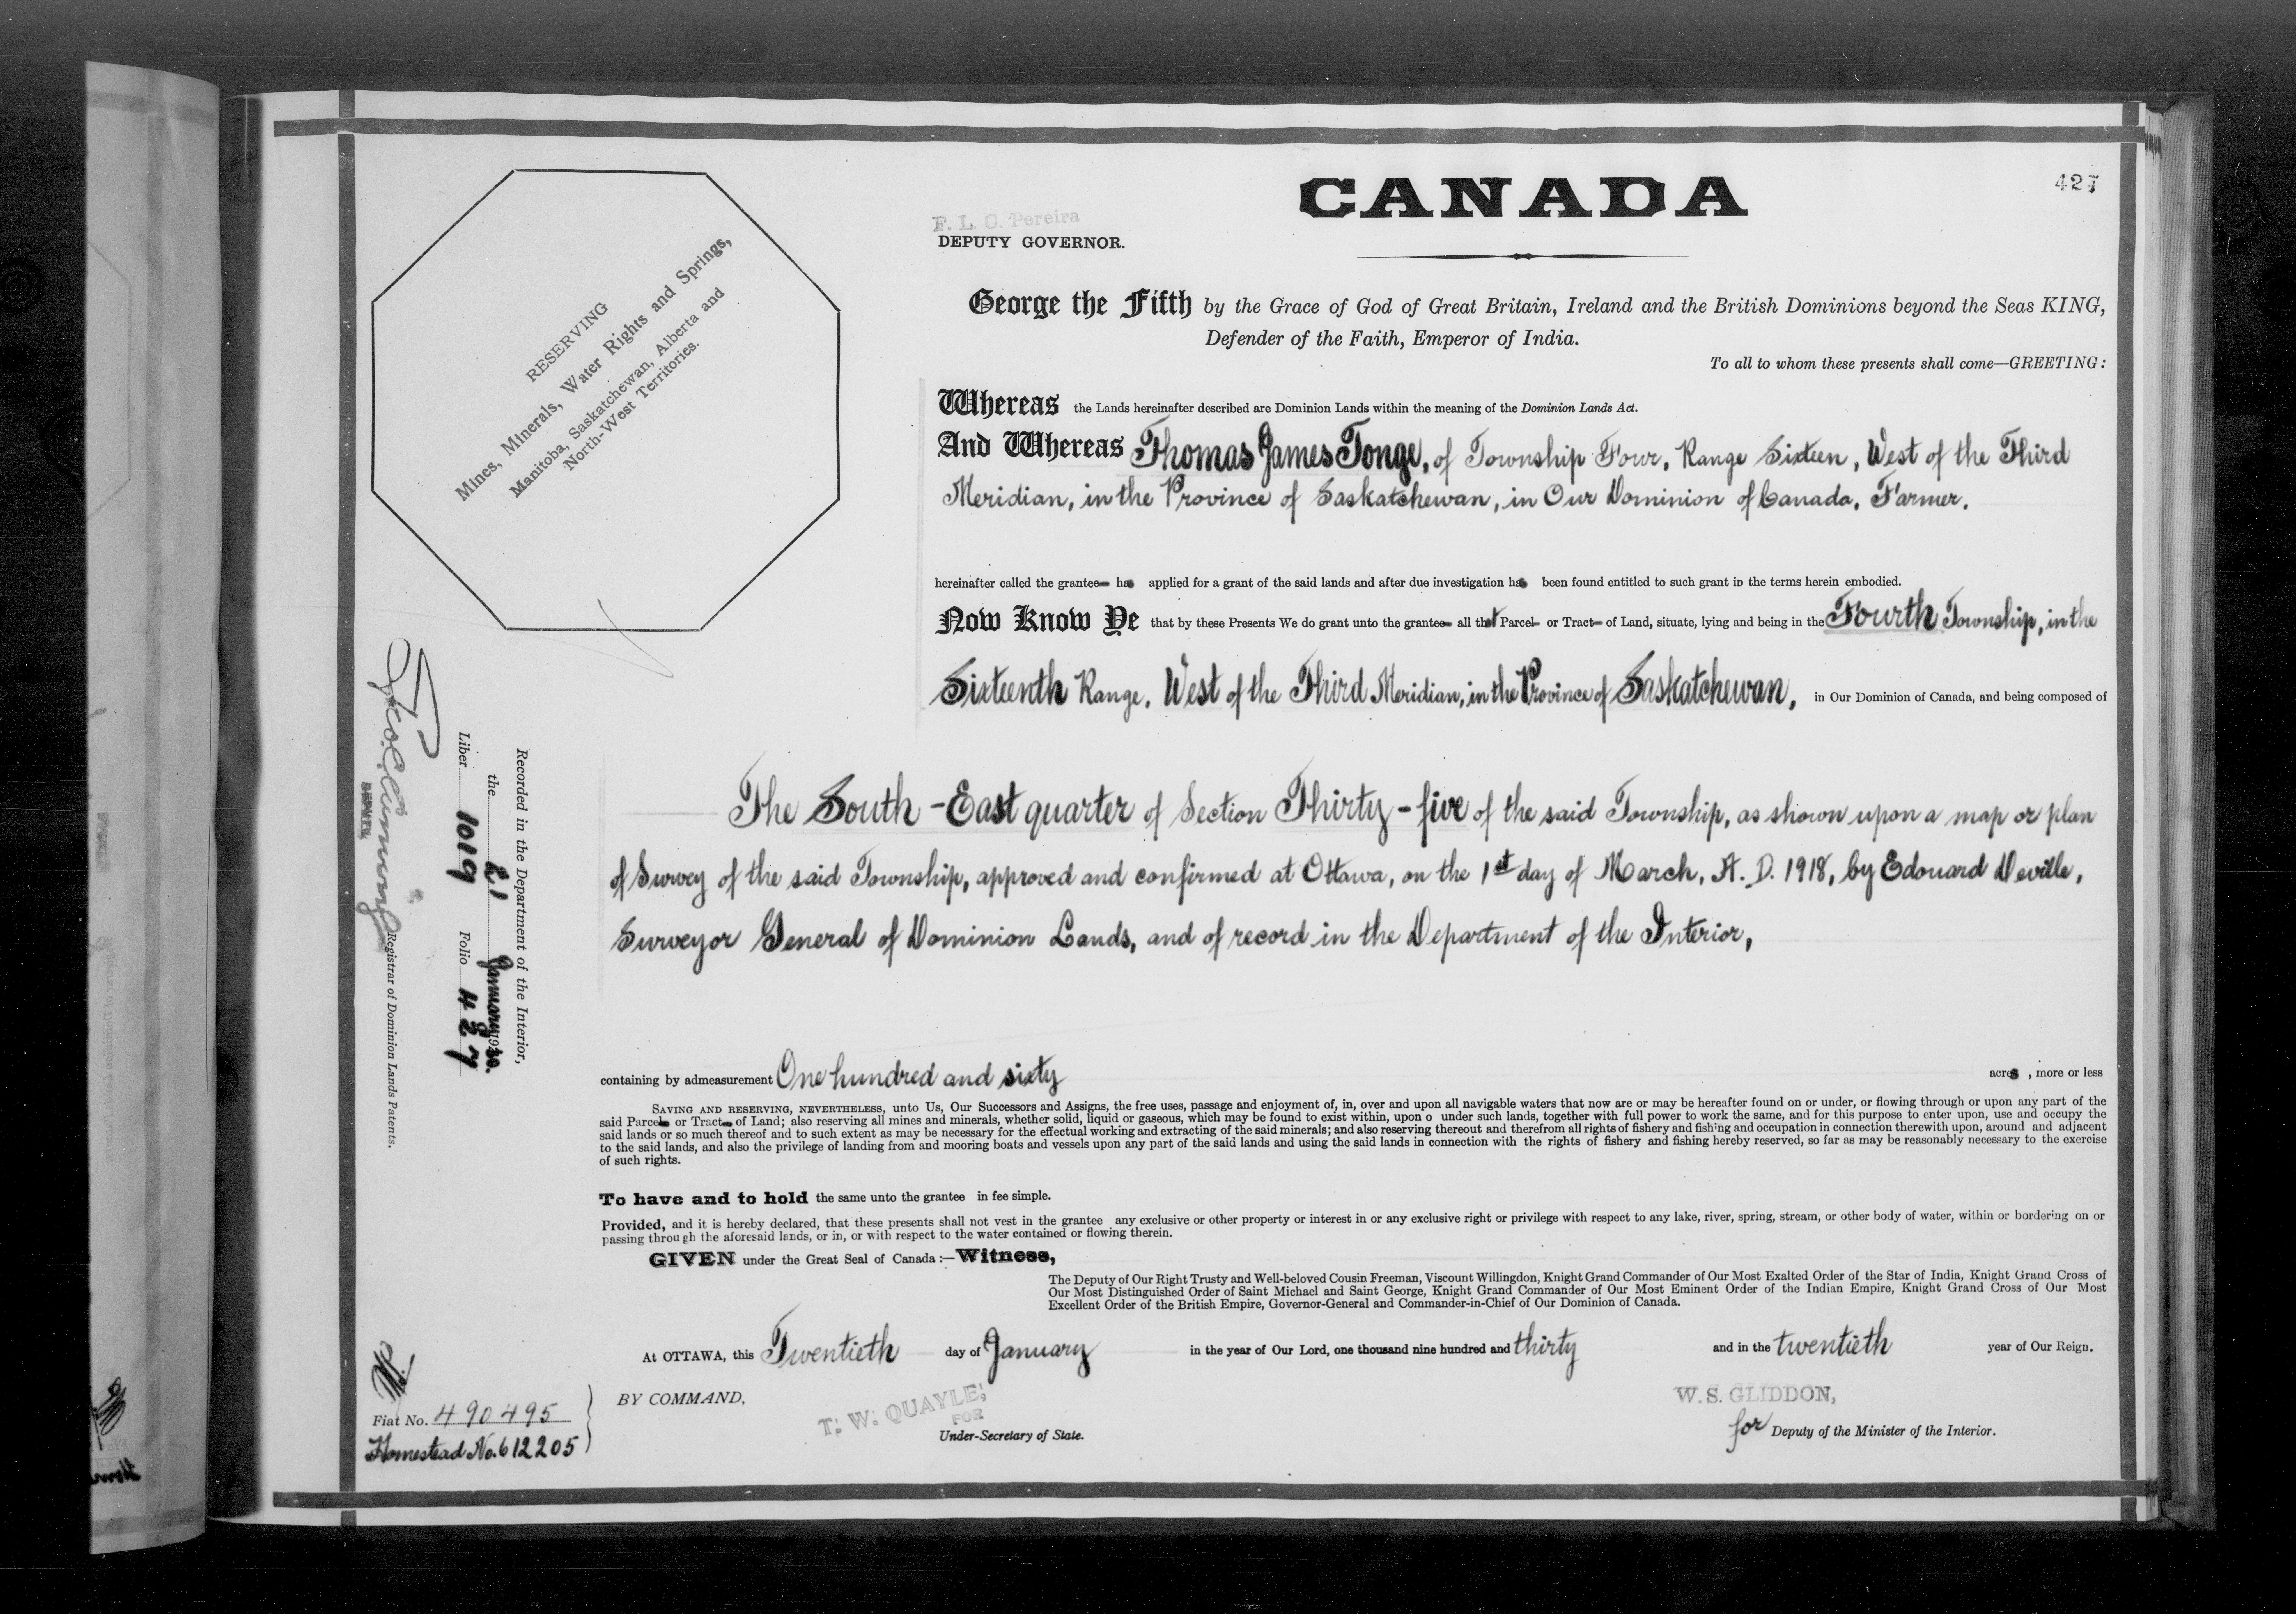 CANADA
427
F. L. C. Pereira
DEPUTY GOVERNOR.
RESERVING
Mines, Minerals, Water Rights and Springs,
Manitoba, Saskatchewan, Alberta and
North-West Territories.
George the Fifth by the Grace of God of Great Britain, Ireland and the British Dominions beyond the Seas KING,
Defender of the Faith, Emperor of India.
To all to whom these presents shall come—GREETING:
Whereas the Lands hereinafter described are Dominion Lands within the meaning of the Dominion Lands Act.
And Whereas Thomas James Tonge, of Township Four, Range Sixteen, West of the Third
Meridian, in the Province of Saskatchewan, in Our Dominion of Canada, Farmer.
hereinafter called the grantee has applied for a grant of the said lands and after due investigation has been found entitled to such grant in the terms herein embodied.
Now Know Ye that by these Presents We do grant unto the grantee all that Parcel or Tract of Land, situate, lying and being in the Fourth Township, in the
Sixteenth Range, West of the Third Meridian, in the Province of Saskatchewan, in Our Dominion of Canada, and being composed of
The South-East quarter of Section Thirty-five of the said Township, as shown upon a map or plan
of Survey of the said Township, approved and confirmed at Ottawa, on the 1st day of March, A. D. 1918, by Edouard Deville,
Surveyor General of Dominion Lands, and of record in the Department of the Interior,
containing by admeasurement One hundred and sixty acres, more or less
SAVING AND RESERVING, NEVERTHELESS, unto Us, Our Successors and Assigns, the free uses, passage and enjoyment of, in, over and upon all navigable waters that now are or may be hereafter found on or under, or flowing through or upon any part of the
said Parcel or Tract of Land; also reserving all mines and minerals, whether solid, liquid or gaseous, which may be found to exist within, upon o under such lands, together with full power to work the same, and for this purpose to enter upon, use and occupy the
said lands or so much thereof and to such extent as may be necessary for the effectual working and extracting of the said minerals; and also reserving thereout and therefrom all rights of fishery and fishing and occupation in connection therewith upon, around and adjacent
to the said lands, and also the privilege of landing from and mooring boats and vessels upon any part of the said lands and using the said lands in connection with the rights of fishery and fishing hereby reserved, so far as may be reasonably necessary to the exercise
of such rights.
To have and to hold the same unto the grantee in fee simple.
Provided, and it is hereby declared, that these presents shall not vest in the grantee any exclusive or other property or interest in or any exclusive right or privilege with respect to any lake, river, spring, stream, or other body of water, within or bordering on or
passing through the aforesaid lands, or in, or with respect to the water contained or flowing therein.
GIVEN under the Great Seal of Canada:—Witness,
The Deputy of Our Right Trusty and Well-beloved Cousin Freeman, Viscount Willingdon, Knight Grand Commander of Our Most Exalted Order of the Star of India, Knight Grand Cross of
Our Most Distinguished Order of Saint Michael and Saint George, Knight Grand Commander of Our Most Eminent Order of the Indian Empire, Knight Grand Cross of Our Most
Excellent Order of the British Empire, Governor-General and Commander-in-Chief of Our Dominion of Canada.
At OTTAWA, this Twentieth day of January in the year of Our Lord, one thousand nine hundred and thirty and in the twentieth year of Our Reign.
BY COMMAND,
T. W. QUAYLE,
FOR
Under-Secretary of State.
W. S. GLIDDON,
for Deputy of the Minister of the Interior.
Recorded in the Department of the Interior,
the 21 January 1930.
Liber 1019 Folio 427
DEPUTY
Registrar of Dominion Lands Patents.
Fiat No. 490495
Homestead No. 612205